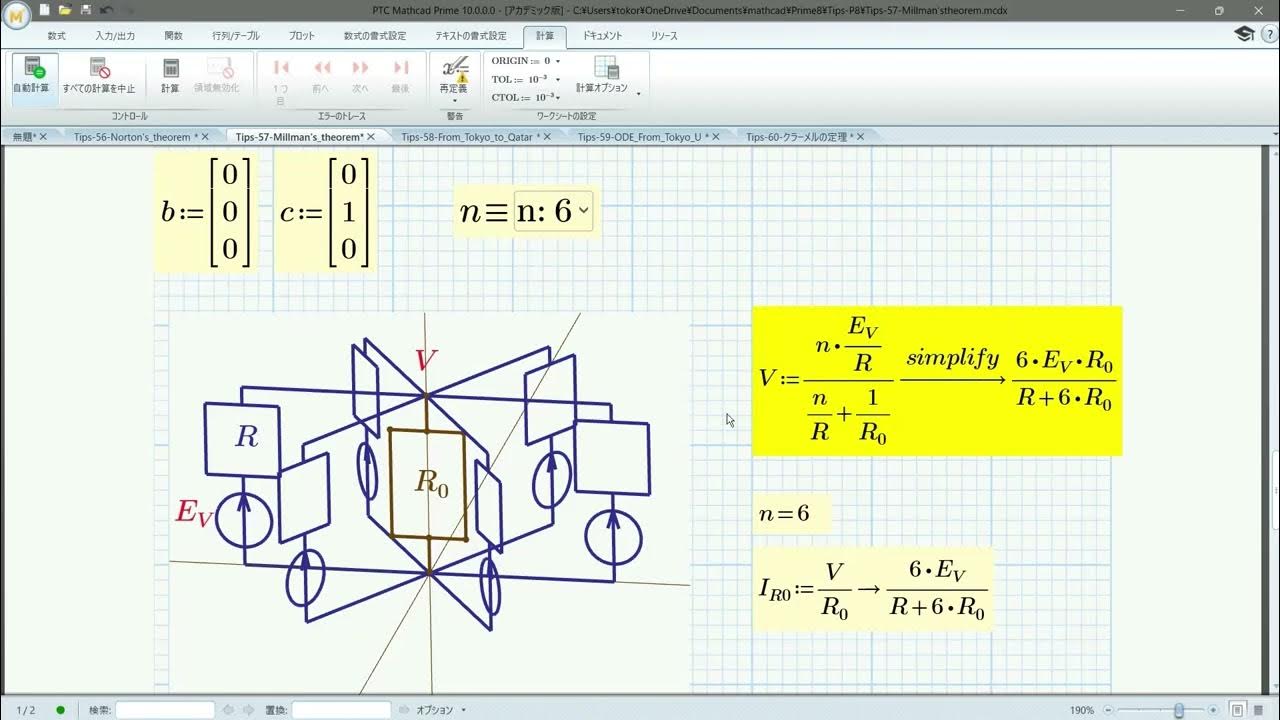 PTC Mathcad Prime 10.0.0.0 - [アカデミック版] - C:¥Users¥tokor¥OneDrive¥Documents¥mathcad¥Prime8¥Tips-P8¥Tips-57-Millman'stheorem.mcdx
数式 入力/出力 関数 行列/テーブル プロット 数式の書式設定 テキストの書式設定 計算 ドキュメント リソース
自動計算 すべての計算を中止 計算 領域無効化 1つ目 前へ 次へ 最後 再定義 ORIGIN:= 0 計算オプション
TOL:= 10⁻³
CTOL:= 10⁻³
コントロール エラーのトレース 警告 ワークシートの設定
無題* Tips-56-Norton's_theorem * Tips-57-Millman's_theorem* Tips-58-From_Tokyo_to_Qatar * Tips-59-ODE_From_Tokyo_U * Tips-60-クラーメルの定理 *
b:=[0 0 0] c:=[0 1 0] n≡ n: 6
V
R
R₀
E_V
V:= (n·E_V/R)/(n/R+1/R₀) simplify→ 6·E_V·R₀/(R+6·R₀)
n=6
I_R0:= V/R₀ → 6·E_V/(R+6·R₀)
1/2 検索: 置換: オプション 190%